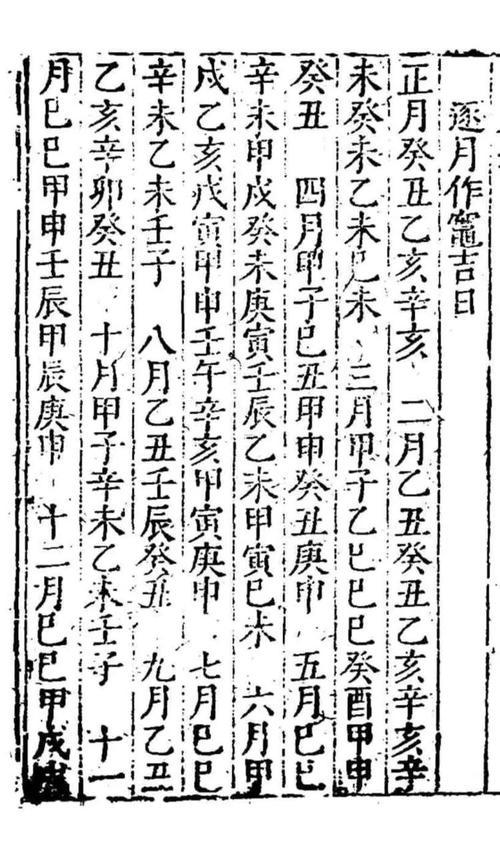 逐月作竈吉日
正月癸丑乙亥辛亥 二月乙丑癸丑乙亥辛亥辛
未癸未乙未己未 三月甲子乙巳己巳癸酉甲申
癸丑 四月甲子己丑甲申癸丑庚申 五月己巳
辛未甲戌癸未庚寅壬辰乙未甲寅己未 六月甲
戌乙亥戊寅甲申壬午辛亥甲寅庚申 七月己巳
辛未乙未壬子 八月乙丑壬辰癸丑 九月乙丑
乙亥辛卯癸丑 十月甲子辛未乙未壬子 十一
月己巳甲申壬辰甲辰庚申 十二月己巳甲戌